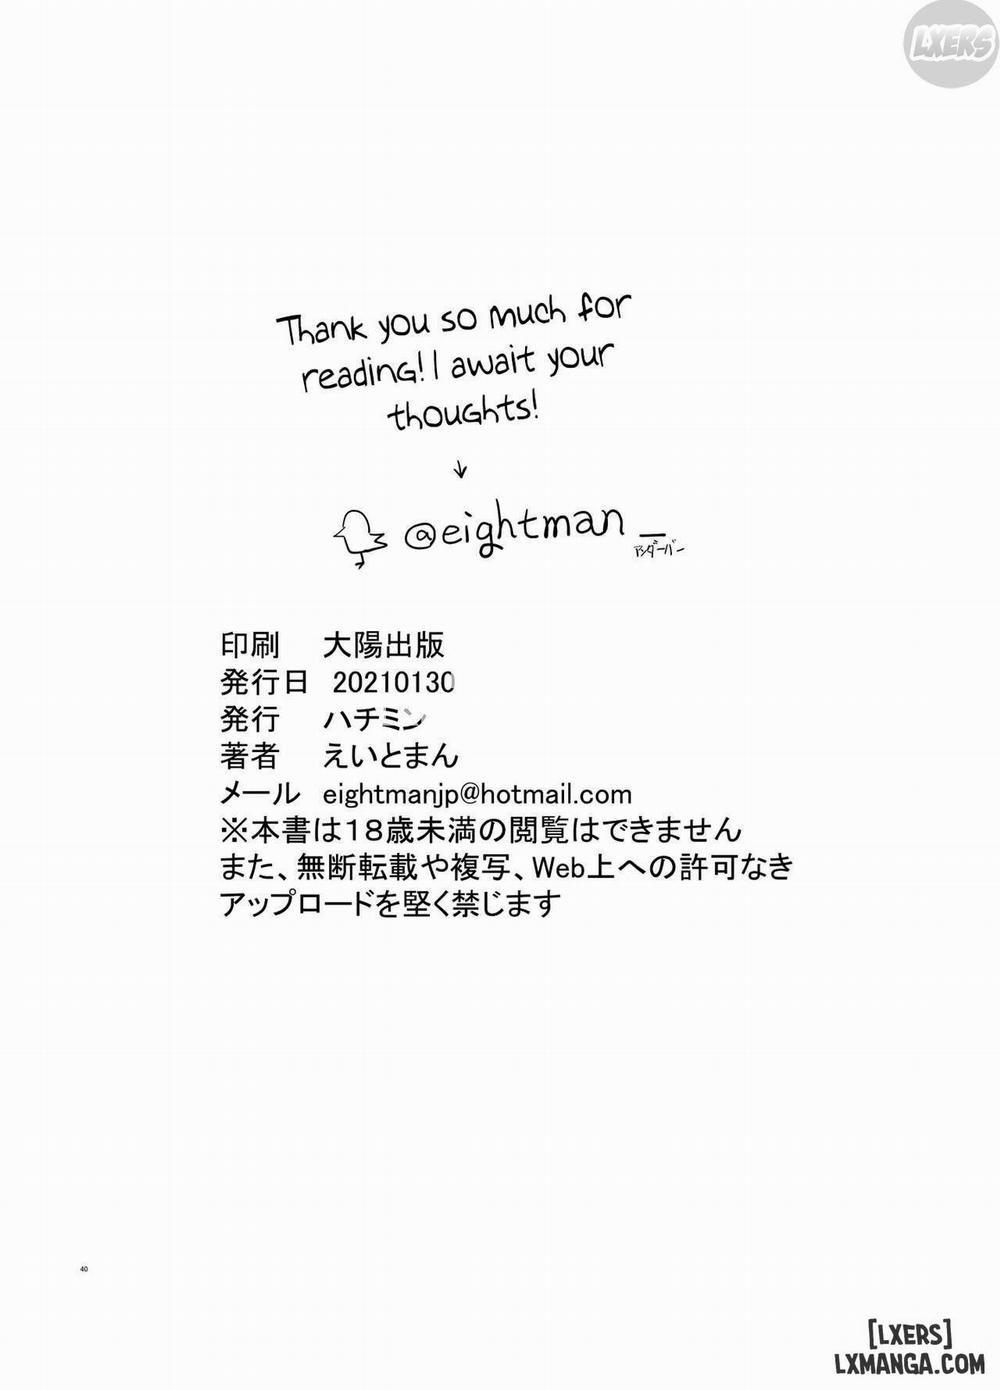 LXERS
Thank you so much for
reading! I await your
thoughts!
↓
@eightman_
アンダーバー
印刷　大陽出版
発行日　20210130
発行　ハチミン
著者　えいとまん
メール　eightmanjp@hotmail.com
※本書は１８歳未満の閲覧はできません
また、無断転載や複写、Web上への許可なき
アップロードを堅く禁じます
40
[LXERS]
LXMANGA.COM